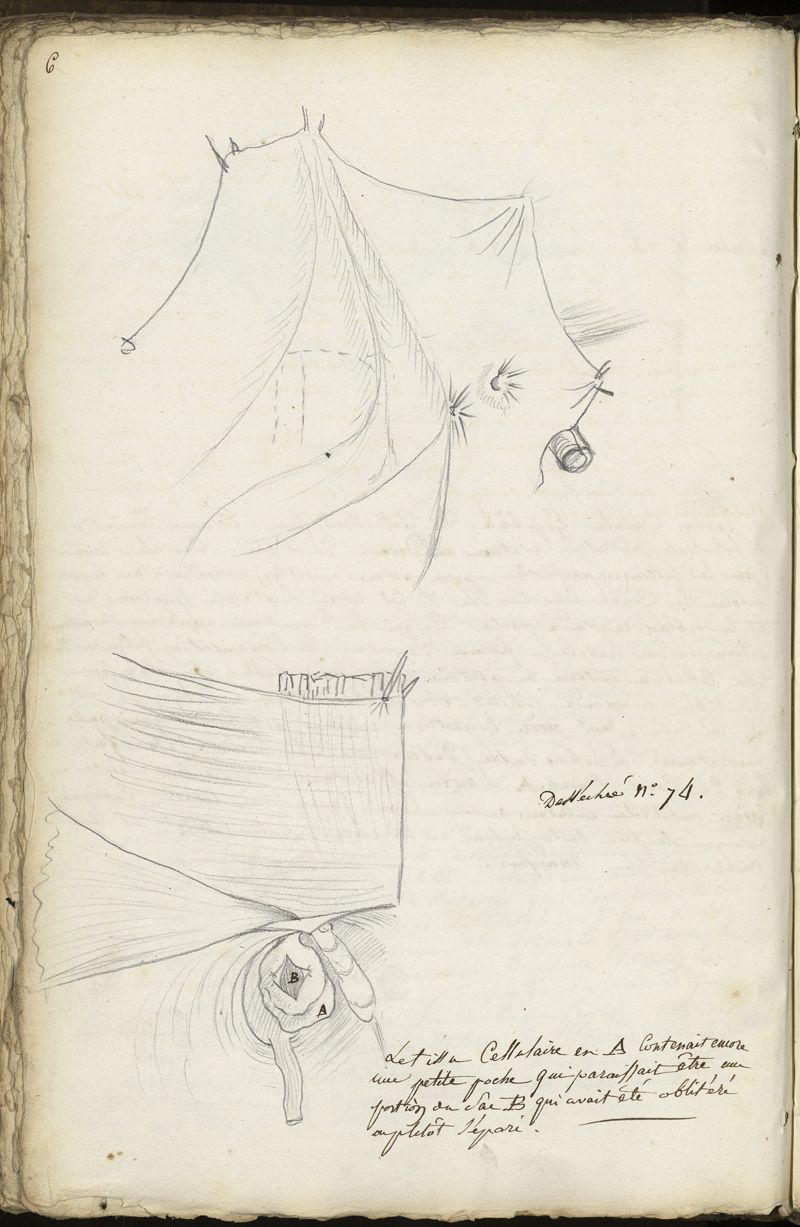 6
Desséchée N.° 74.
B
A
Le tissu Cellulaire en A Contenait encore
une petite poche qui paraissait être une
portion du Sac B qui avait été oblitéré
ou plutôt Séparé.